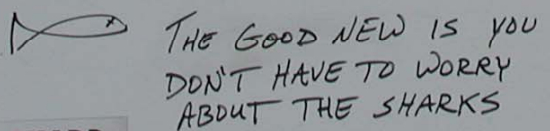 THE GOOD NEW IS YOU
DON'T HAVE TO WORRY
ABOUT THE SHARKS